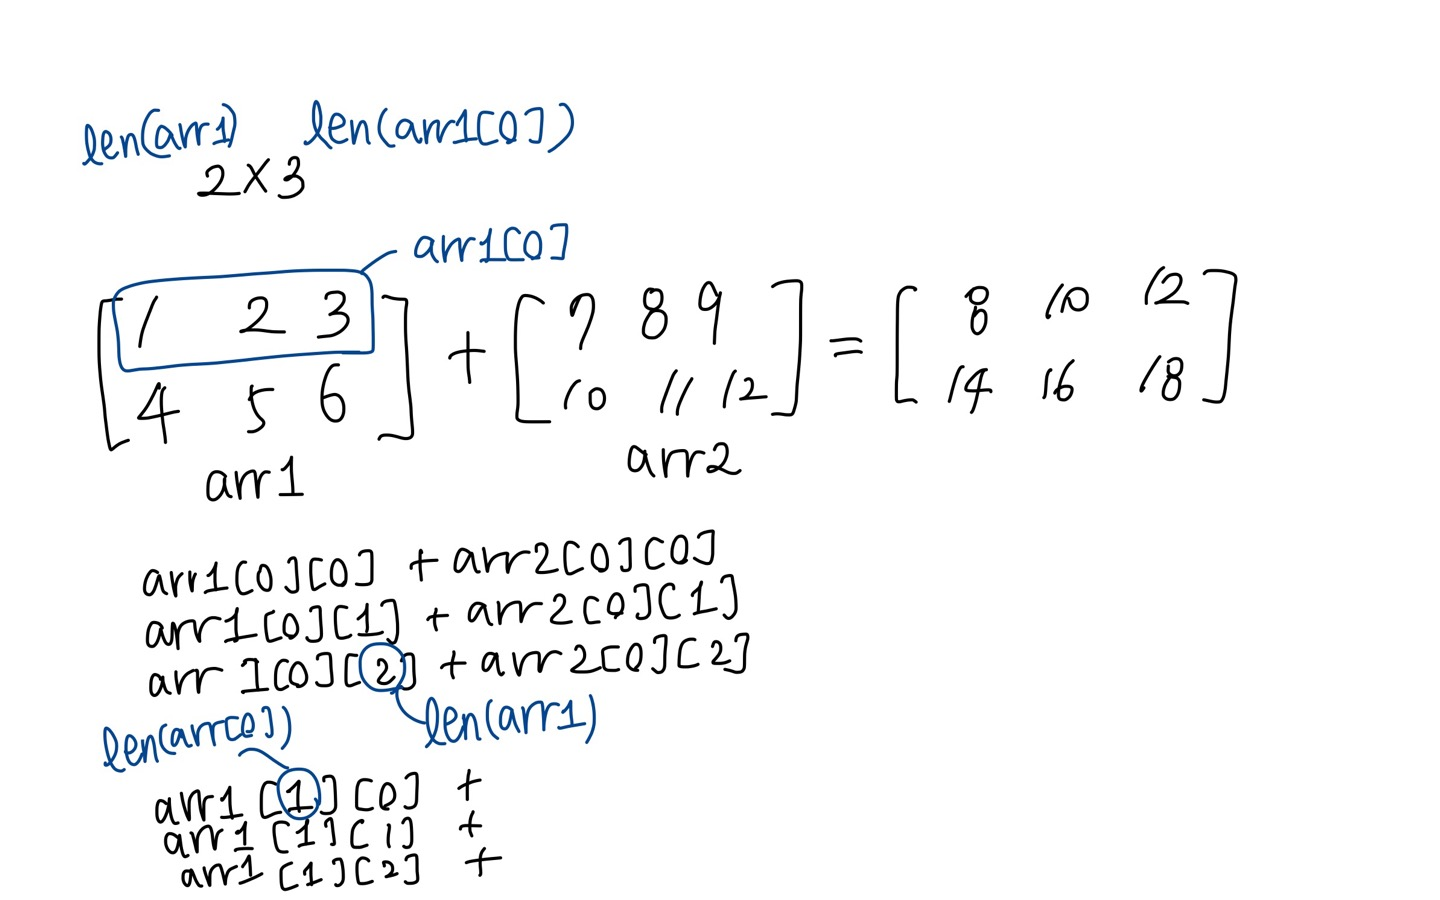 len(arr1) len(arr1[0])
2X3
arr1[0]
[1 2 3] + [7 8 9] = [8 10 12]
[4 5 6] [10 11 12] [14 16 18]
arr1 arr2
arr1[0][0] + arr2[0][0]
arr1[0][1] + arr2[0][1]
arr1[0][2] + arr2[0][2]
len(arr[0]) len(arr1)
arr1[1][0] +
arr1[1][1] +
arr1[1][2] +